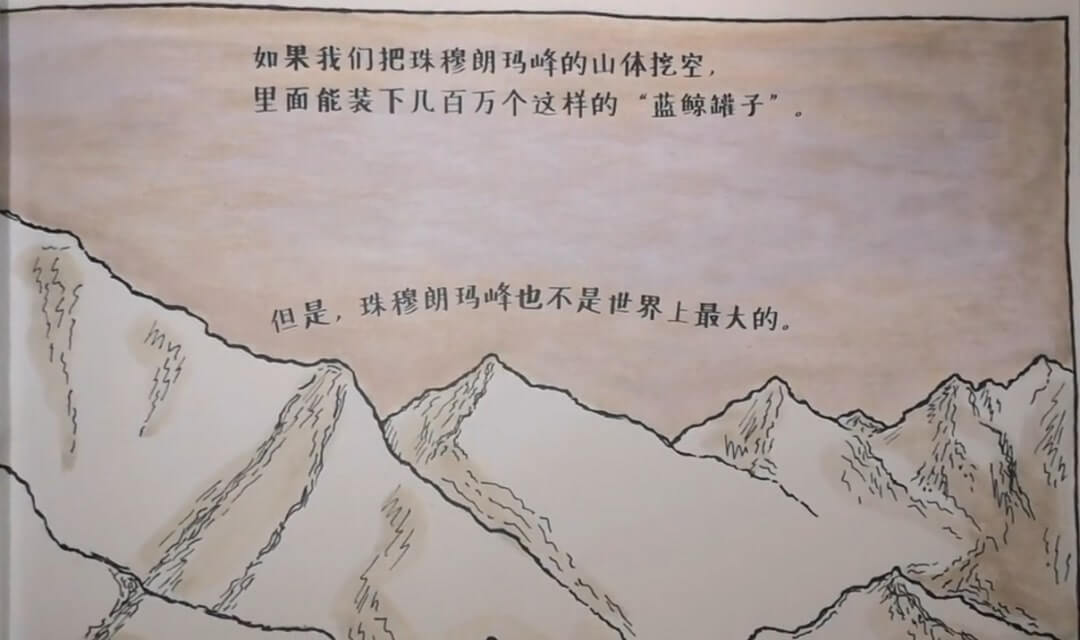 如果我们把珠穆朗玛峰的山体挖空，
里面能装下几百万个这样的“蓝鲸罐子”。
但是，珠穆朗玛峰也不是世界上最大的。